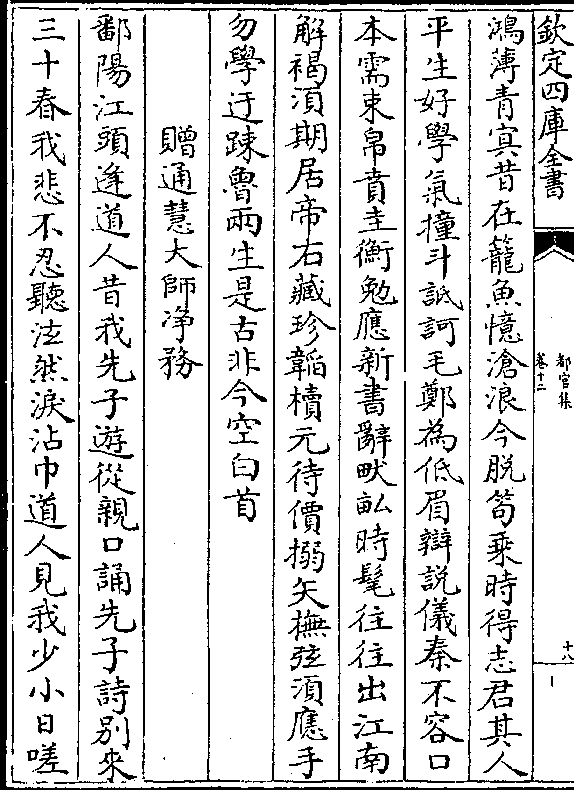 欽定四庫全書
都官集
卷十二
十八
鴻薄青冥昔在籠魚憶滄浪今脱笱乗時得志君其人
平生好學氣撞斗詆訶毛鄭為低眉辯說儀秦不容口
本需束帛賁圭衡勉應新書辭畎畝時髦往往出江南
解褐湏期居帝右藏珍韞櫝元待價搦矢撫弦湏應手
勿學迂踈魯兩生是古非今空白首
贈通慧大師淨務
鄱陽江頭逢道人昔我先子遊從親口誦先子詩别來
三十春我悲不忍聽泫然淚沾巾道人見我少小日嗟